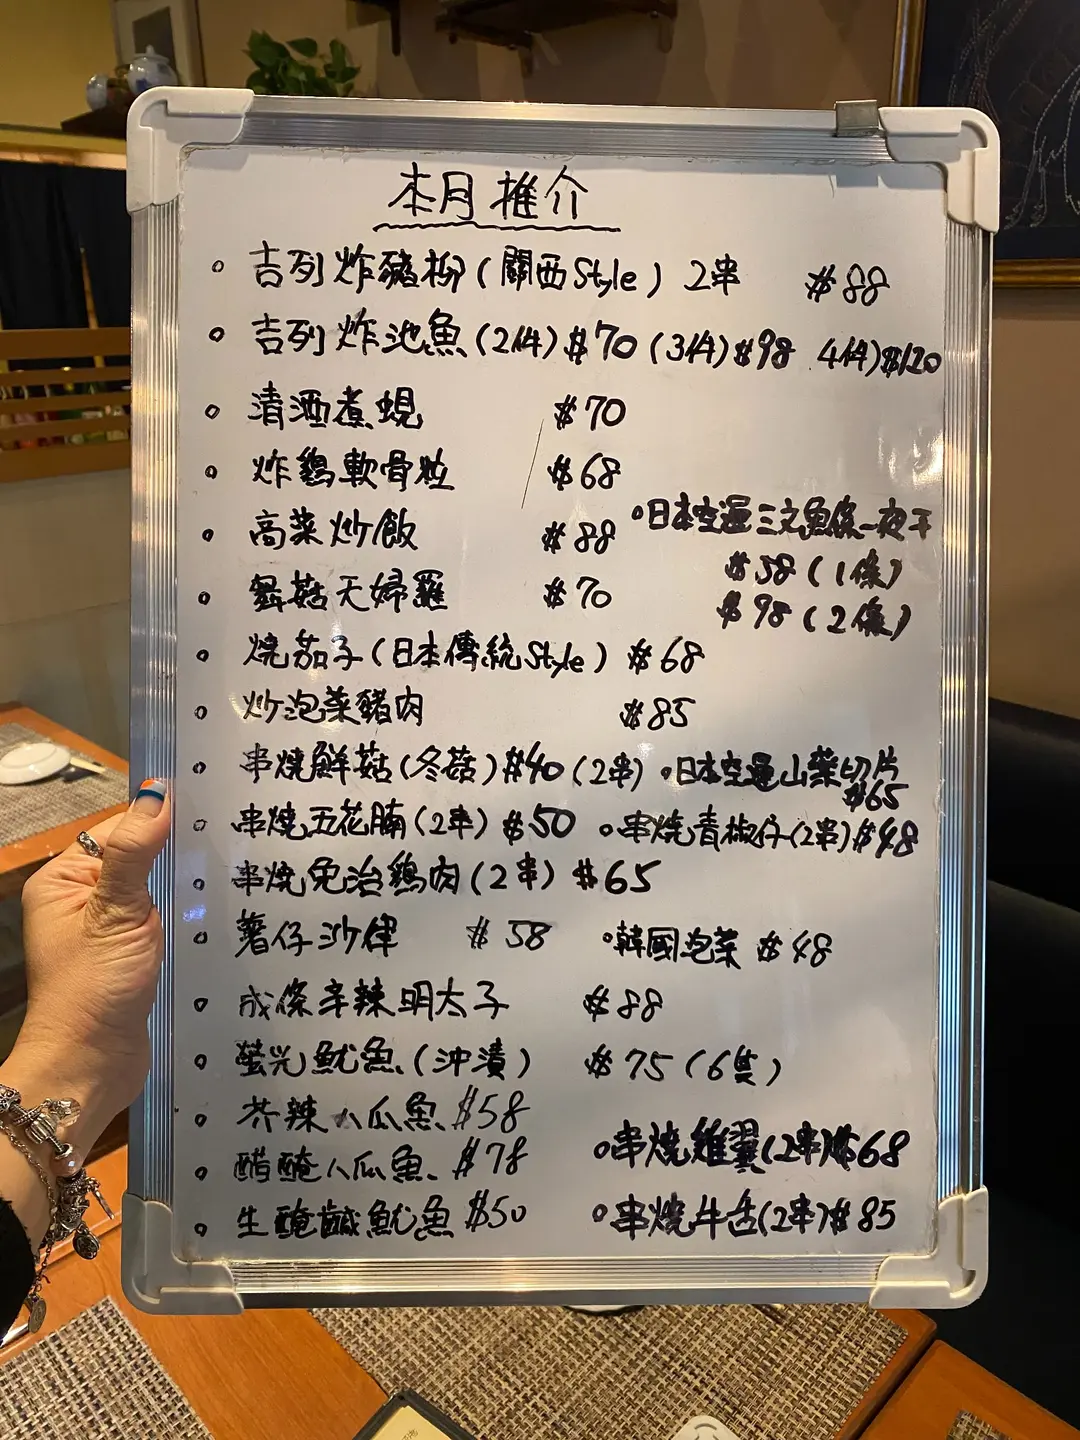 本月推介
吉列炸豬柳(關西Style) 2串 $88
吉列炸池魚(2件)$70 (3件)$98 4件)$120
清酒煮蜆 $70
炸鷄軟骨粒 $68
高菜炒飯 $88
日本空運三文魚條一夜干
$58(1條)
$98(2條)
舞菇天婦羅 $70
燒茄子(日本傳統Style) $68
炒泡菜豬肉 $85
串燒鮮菇(冬菇)$40(2串)
日本空運山藥切片
$65
串燒五花腩(2串) $50
串燒青椒仔(2串)$48
串燒免治鷄肉(2串) $65
薯仔沙律 $58
韓國泡菜 $48
成條辛辣明太子 $88
螢光魷魚(沖漬) $75(6隻)
芥辣八爪魚 $58
醋醃八爪魚 $78
串燒雞翼(2串)$68
生醃鹹魷魚 $50
串燒牛舌(2串)$85